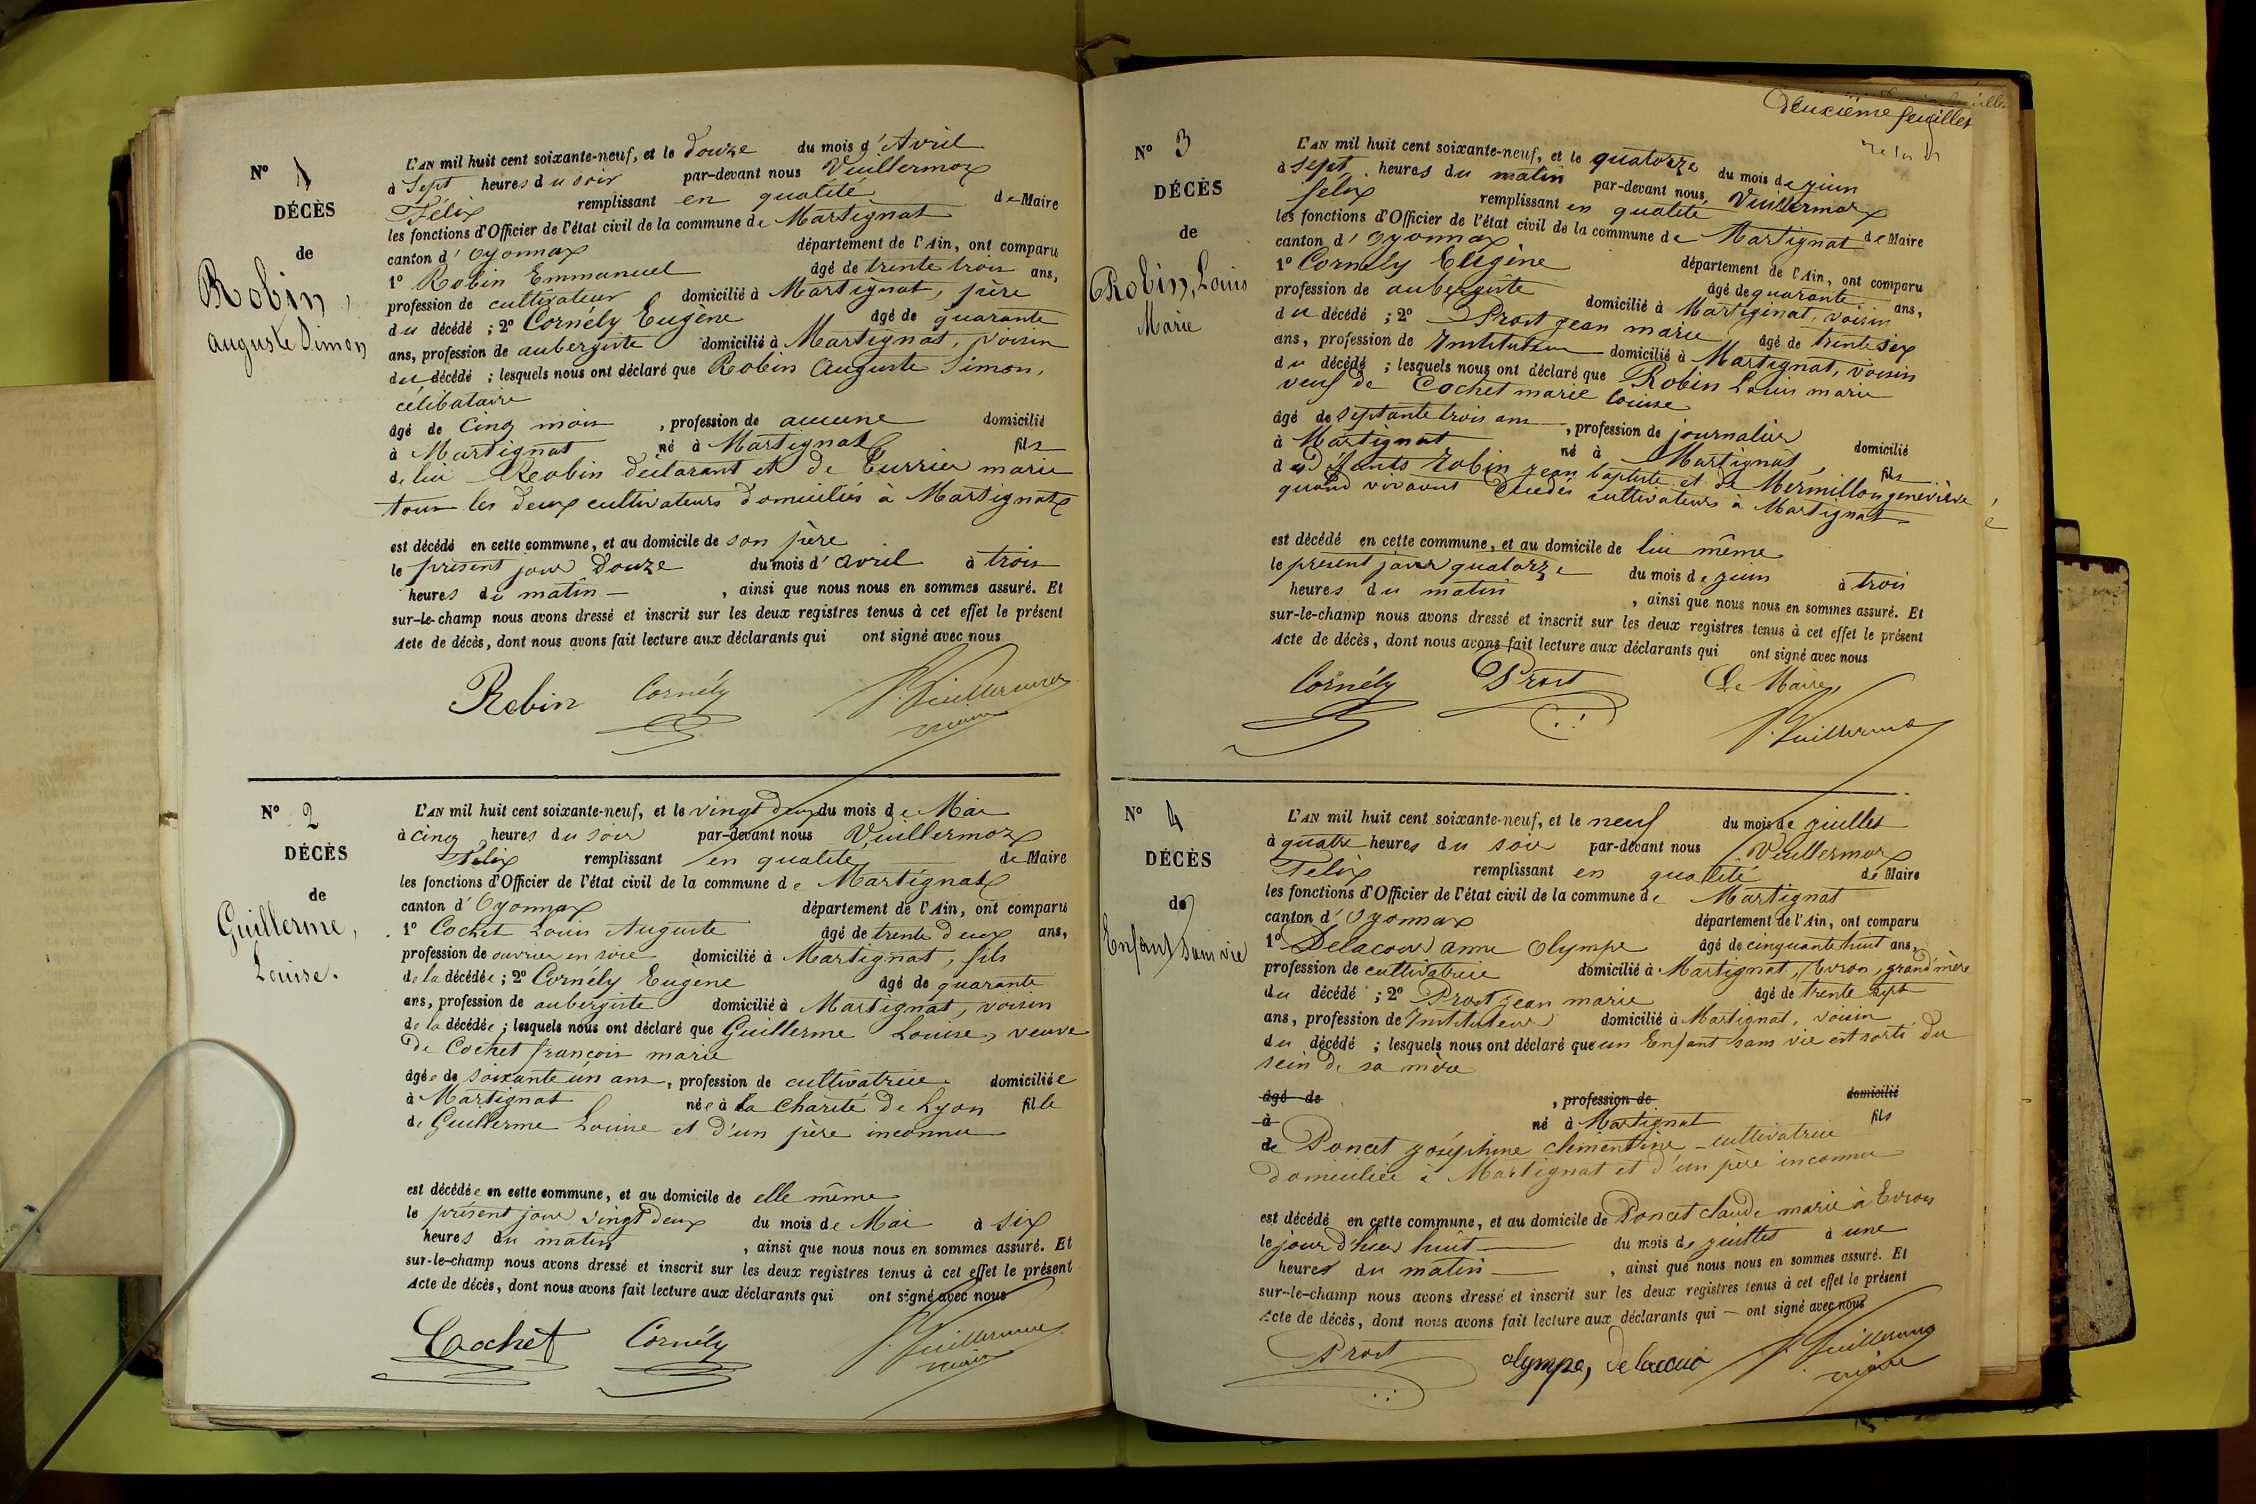 N° 1
DÉCÈS
de
Robin,
Auguste Simon
L'AN mil huit cent soixante-neuf, et le douze du mois d'Avril
à Sept heures du soir par-devant nous Vuillermoz
Félix remplissant en qualité de Maire
les fonctions d'Officier de l'état civil de la commune de Martignat
canton d'Oyonnax département de l'Ain, ont comparu
1° Robin Emmanuel âgé de trente trois ans,
profession de cultivateur domicilié à Martignat, père
du décédé ; 2° Cornély Eugène âgé de quarante
ans, profession de aubergiste domicilié à Martignat, voisin
du décédé ; lesquels nous ont déclaré que Robin Auguste Simon,
célibataire
âgé de cinq mois , profession de aucune domicilié
à Martignat né à Martignat fils
de lui Robin déclarant et de Curvier marie
tous les deux cultivateurs domiciliés à Martignat
est décédé en cette commune, et au domicile de son père
le présent jour douze du mois d'avril à trois
heures du matin , ainsi que nous nous en sommes assuré. Et
sur-le-champ nous avons dressé et inscrit sur les deux registres tenus à cet effet le présent
Acte de décès, dont nous avons fait lecture aux déclarants qui ont signé avec nous
Robin Cornély F. Vuillermoz
maire
N° 2
DÉCÈS
de
Guillerme,
Louise.
L'AN mil huit cent soixante-neuf, et le vingt deux du mois de Mai
à cinq heures du soir par-devant nous Vuillermoz
Félix remplissant en qualité de Maire
les fonctions d'Officier de l'état civil de la commune de Martignat
canton d'Oyonnax département de l'Ain, ont comparu
1° Cochet Louis Auguste âgé de trente deux ans,
profession de ouvrier en soie domicilié à Martignat, fils
de la décédée ; 2° Cornély Eugène âgé de quarante
ans, profession de aubergiste domicilié à Martignat, voisin
de la décédée ; lesquels nous ont déclaré que Guillerme Louise, veuve
de Cochet françois marie
âgée de soixante un ans, profession de cultivatrice domiciliée
à Martignat née à la Charité de Lyon fille
de Guillerme Louise et d'un père inconnu
est décédée en cette commune, et au domicile de elle même
le présent jour vingt deux du mois de Mai à six
heures du matin , ainsi que nous nous en sommes assuré. Et
sur-le-champ nous avons dressé et inscrit sur les deux registres tenus à cet effet le présent
Acte de décès, dont nous avons fait lecture aux déclarants qui ont signé avec nous
Cochet Cornély F. Vuillermoz
maire
Deuxième feuillet
N° 3
DÉCÈS
de
Robin, Louis
Marie
L'AN mil huit cent soixante-neuf, et le quatorze du mois de juin
à sept heures du matin par-devant nous, Vuillermoz
félix remplissant en qualité de Maire
les fonctions d'Officier de l'état civil de la commune de Martignat
canton d'Oyonnax département de l'Ain, ont comparu
1° Cornély Eugène âgé de quarante ans,
profession de aubergiste domicilié à Martignat, voisin
du décédé ; 2° Prost jean marie âgé de trente six
ans, profession de Instituteur domicilié à Martignat, voisin
du décédé ; lesquels nous ont déclaré que Robin Louis marie
veuf de Cochet marie Louise
âgé de septante trois ans , profession de journalier domicilié
à Martignat né à Martignat, fils
des défunts Robin jean baptiste et de Mermillon geneviève
quand vivaient cultivateurs à Martignat
est décédé en cette commune, et au domicile de lui même
le présent jour quatorze du mois de juin à trois
heures du matin , ainsi que nous nous en sommes assuré. Et
sur-le-champ nous avons dressé et inscrit sur les deux registres tenus à cet effet le présent
Acte de décès, dont nous avons fait lecture aux déclarants qui ont signé avec nous
Cornély Prost Le Maire,
F. Vuillermoz
N° 4
DÉCÈS
de
Enfant sans vie
L'AN mil huit cent soixante-neuf, et le neuf du mois de juillet
à quatre heures du soir par-devant nous Vuillermoz
Félix remplissant en qualité de Maire
les fonctions d'Officier de l'état civil de la commune de Martignat
canton d'Oyonnax département de l'Ain, ont comparu
1° Delacour anne Olympe âgé de cinquante huit ans,
profession de cultivatrice domicilié à Martignat, Evron, grand'mère
du décédé ; 2° Prost jean marie âgé de trente sept
ans, profession de Instituteur domicilié à Martignat, voisin
du décédé ; lesquels nous ont déclaré que un Enfant sans vie est sorti du
sein de sa mère
âgé de , profession de domicilié
à né à Martignat fils
de Poncet joséphine clémentine cultivatrice
domiciliée à Martignat et d'un père inconnu
est décédé en cette commune, et au domicile de Poncet claude marie à Evron
le jour d'hier huit du mois de juillet à une
heures du matin , ainsi que nous nous en sommes assuré. Et
sur-le-champ nous avons dressé et inscrit sur les deux registres tenus à cet effet le présent
Acte de décès, dont nous avons fait lecture aux déclarants qui ont signé avec nous
Prost olympe, F. Vuillermoz
maire